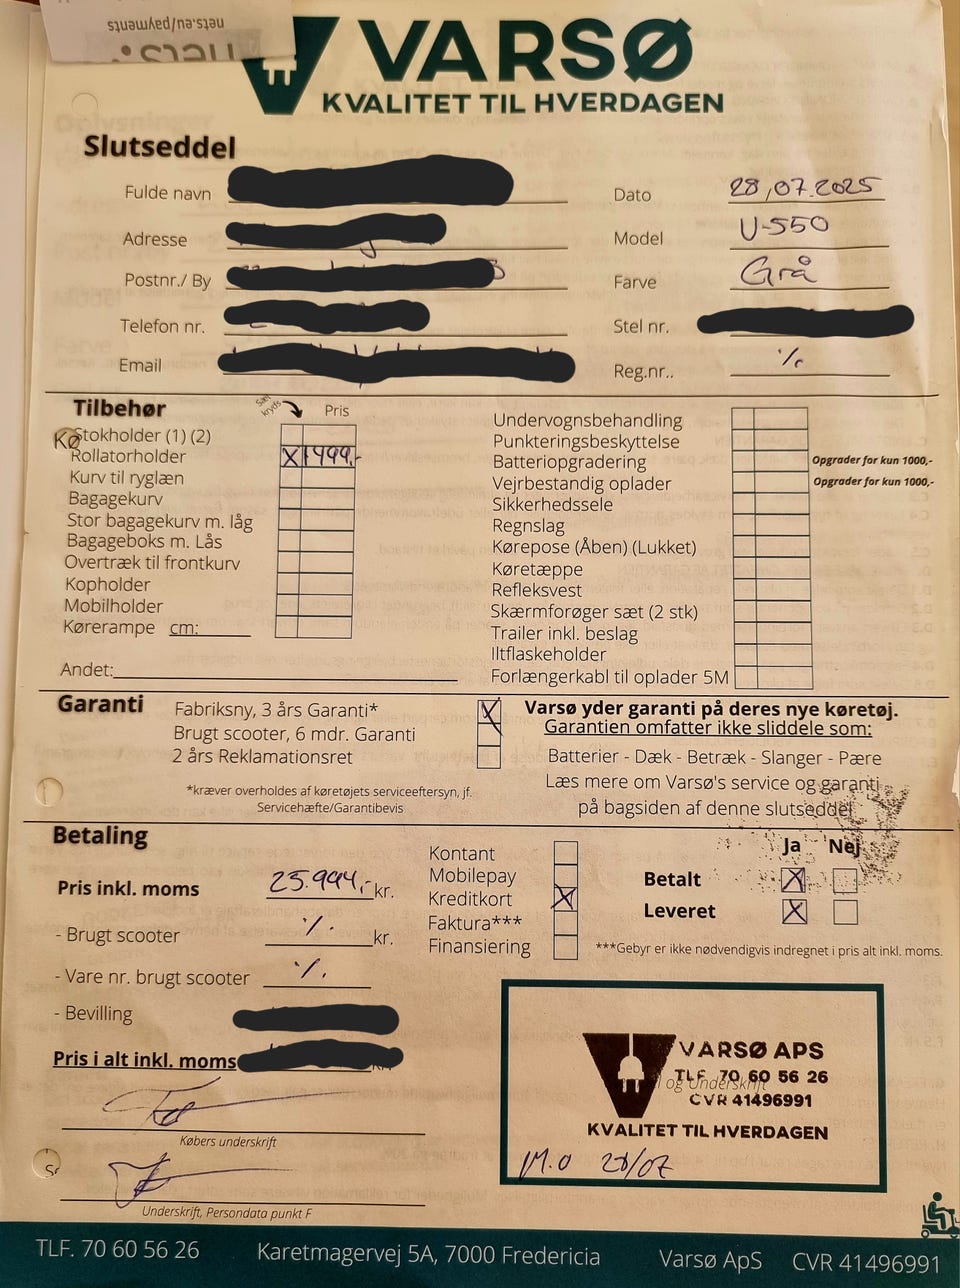 nets.eu/payments
nets:
VARSØ
KVALITET TIL HVERDAGEN
Slutseddel
Fulde navn
Dato 28,07.2025
Adresse
Model U-550
Postnr./ By
Farve Grå
Telefon nr.
Stel nr.
Email
Reg.nr.. %
Tilbehør
kryds
Pris
Stokholder (1) (2)
Kø
Rollatorholder X 1499,-
Kurv til ryglæn
Bagagekurv
Stor bagagekurv m. låg
Bagageboks m. Lås
Overtræk til frontkurv
Kopholder
Mobilholder
Kørerampe cm:
Andet:
Undervognsbehandling
Punkteringsbeskyttelse
Batteriopgradering Opgrader for kun 1000,-
Vejrbestandig oplader Opgrader for kun 1000,-
Sikkerhedssele
Regnslag
Kørepose (Åben) (Lukket)
Køretæppe
Refleksvest
Skærmforøger sæt (2 stk)
Trailer inkl. beslag
Iltflaskeholder
Forlængerkabl til oplader 5M
Garanti
Fabriksny, 3 års Garanti* X
Brugt scooter, 6 mdr. Garanti
2 års Reklamationsret
*kræver overholdes af køretøjets serviceeftersyn, jf.
Servicehæfte/Garantibevis
Varsø yder garanti på deres nye køretøj.
Garantien omfatter ikke sliddele som:
Batterier - Dæk - Betræk - Slanger - Pære
Læs mere om Varsø's service og garanti
på bagsiden af denne slutseddel
Betaling
Pris inkl. moms 25.994,- kr.
- Brugt scooter %. kr.
- Vare nr. brugt scooter %.
- Bevilling
Pris i alt inkl. moms
Kontant
Mobilepay
Kreditkort X
Faktura***
Finansiering
Ja Nej
Betalt X
Leveret X
***Gebyr er ikke nødvendigvis indregnet i pris alt inkl. moms.
Købers underskrift
Underskrift, Persondata punkt F
VARSØ APS
TLF. 70 60 56 26
og Underskrift
CVR 41496991
KVALITET TIL HVERDAGEN
M.O 28/07
TLF. 70 60 56 26 Karetmagervej 5A, 7000 Fredericia Varsø ApS CVR 41496991